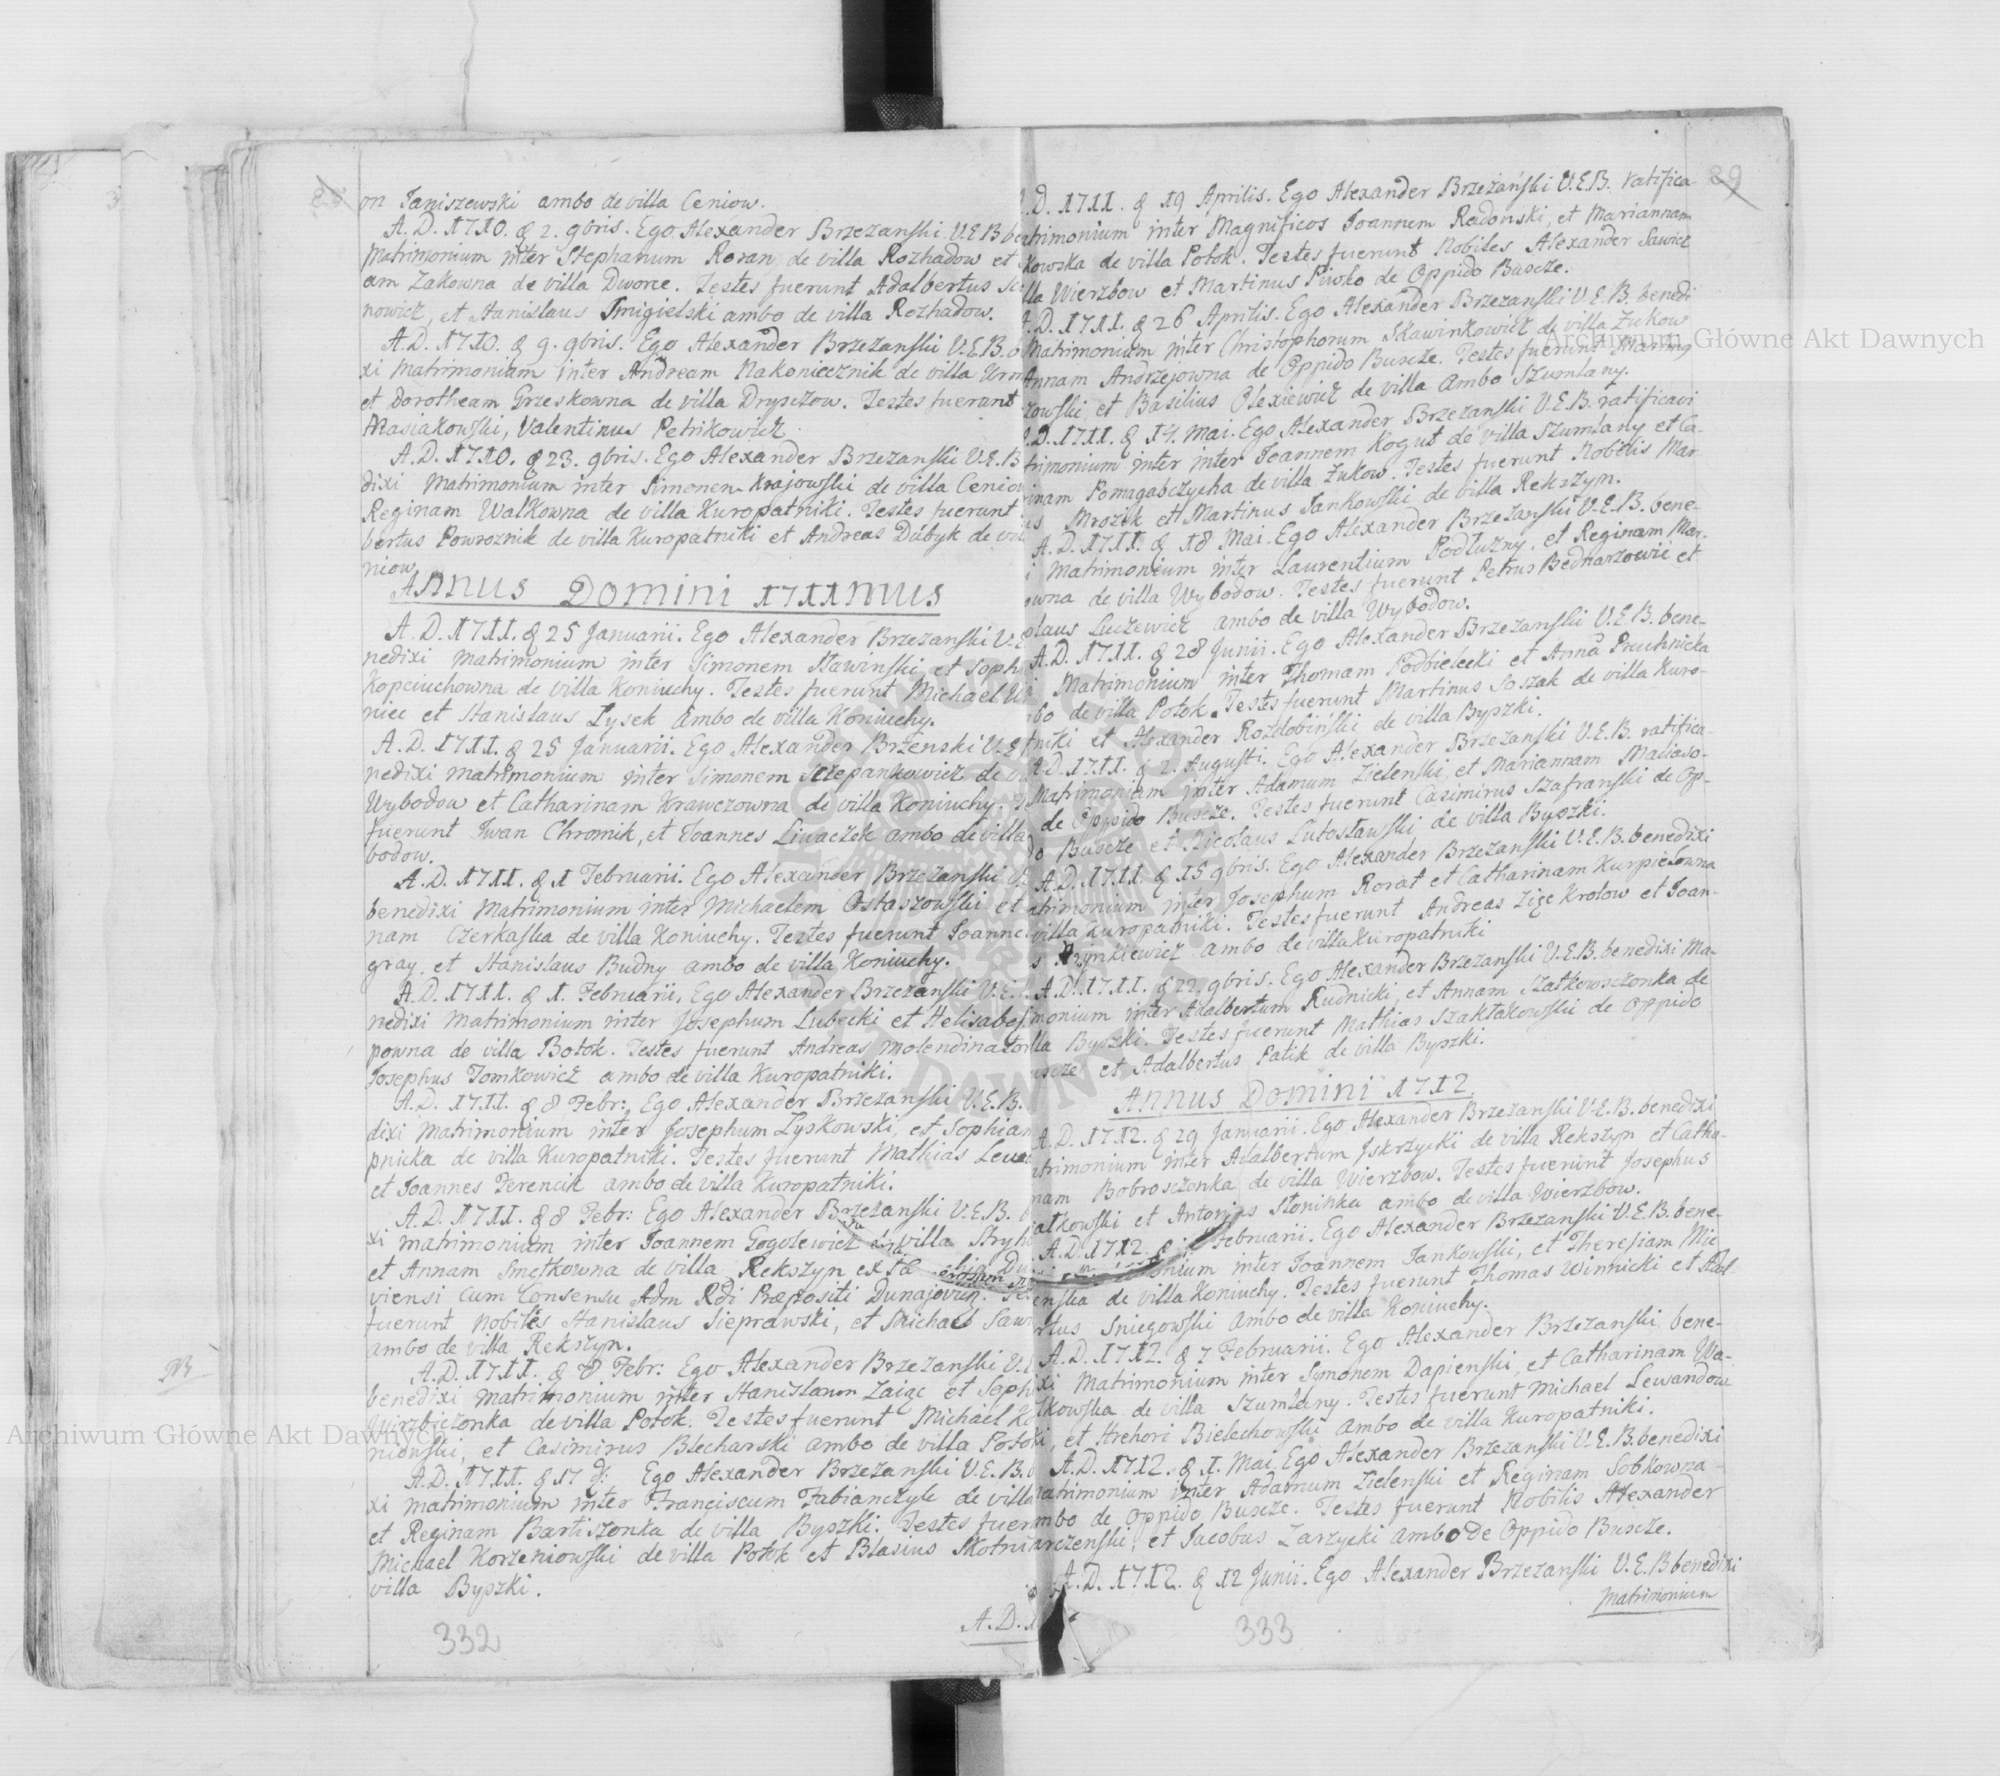 on Janiszewski ambo de villa Ceniow.
A.D. 1710. d 2. 9bris. Ego Alexander Brzezanski V.E.B. be
Matrimonium inter Stephanum Roran, de villa Rozhadow et
am Zakowna de villa Dworce. Testes fuerunt Adalbertus
nowicz, et Stanislaus Smigielski ambo de villa Rozhadow.
A.D. 1710. d 9. 9bris. Ego Alexander Brzezanski V.E.B.
xi Matrimonium inter Andream Nakoniecznik de villa Urm
et Dorotheam Grzeskowna de villa Dryszczow. Testes fuerunt
Masiakowski, Valentinus Petrikowicz.
A.D. 1710. d 23. 9bris. Ego Alexander Brzezanski V.E.B
dixi Matrimonium inter Simonem Krajowski de villa Ceniow
Reginam Walkowna de villa Kuropatniki. Testes fuerunt
bertus Powroznik de villa Kuropatniki et Andreas Dubyk de
niow.
Annus Domini 1711mus
A.D. 1711. d 25 Januarii. Ego Alexander Brzezanski V.E
nedixi Matrimonium inter Simonem Stawinski, et Soph
Kopciuchowna de villa Koniuchy. Testes fuerunt Michael
niec et Stanislaus Lysek ambo de villa Koniuchy.
A.D. 1711. d 25 Januarii. Ego Alexander Brzenski V.E
nedixi Matrimonium inter Simonem Szczepankowicz de
Wybodow et Catharinam Krawczowna de villa Koniuchy.
fuerunt Iwan Chromik, et Joannes Liwaczek ambo de villa
bodow.
A.D. 1711. d 1 Februarii. Ego Alexander Brzezanski
benedixi Matrimonium inter Michaelem Ostaszowski et
nam Czerkaska de villa Koniuchy. Testes fuerunt Joanne
gray, et Stanislaus Budny ambo de villa Koniuchy.
A.D. 1711. d 1. Februarii. Ego Alexander Brzezanski V.E.
nedixi Matrimonium inter Josephum Lubecki et Helisabe
powna de villa Botok. Testes fuerunt Andreas molendinator
Josephus Tomkowicz ambo de villa Kuropatniki.
A.D. 1711. d 8 Febr: Ego Alexander Brzezanski V.E.B.
dixi Matrimonium inter Josephum Lyskowski, et Sophiam
pnicka de villa Kuropatniki. Testes fuerunt Mathias
et Joannes Ferencik ambo de villa Kuropatniki.
A.D. 1711. d 8 Febr: Ego Alexander Brzezanski V.E.B.
xi matrimonium inter Joannem Gogolewicz villa
et Annam Smętkowna de villa Rekszyn
viensi cum Consensu Adm Rdi Præpositi
fuerunt Nobiles Stanislaus Sieprawski, et Michael
ambo de villa Rekszyn.
A.D. 1711. d 8 Febr: Ego Alexander Brzezanski V.
benedixi matrimonium inter Stanislaum Zaigc et Soph
Wirzbiczonka de villa Potok. Testes fuerunt Michael
, et Casimirus Blecharski ambo de villa Potok
A.D. 1711. d 17 Ego Alexander Brzezanski V.E.B.
xi matrimonium inter Franciscum Fabianczyk de villa
et Reginam Bartiszonka de villa Byszki. Testes fuer
Michael Korzeniowski de villa Potok et Blasius
villa Byszki.
A.D.
332
29
.D. 1711. d 19 Aprilis. Ego Alexander Brzeżański V.E.B. ratifica
trimonium inter Magnificos Joannem Radonski, et Mariannam
kowska de villa Potok. Testes fuerunt Nobiles Alexander Sawicz
lla Wierzbow et Martinus Piwko de Oppido Buscze.
.D. 1711. d 26 Aprilis. Ego Alexander Brzezanski V.E.B. benedi
Matrimonium inter Christophorum Skawinkowicz de villa Zukow
Annam Andrzejowna de Oppido Buscze. Testes fuerunt
zowski et Basilius Olexiewicz de villa ambo Szumlany.
.D. 1711. d 14. Mai. Ego Alexander Brzezanski V.E.B. ratificavi
trimonium inter inter Joannem Kogut de villa Szumlany et Ca-
rinam Pomagabczycha de villa Zukow. Testes fuerunt Nobilis Mar
us Mrozik et Martinus Jankowski de villa Rekszyn.
A.D. 1711. d 18 Mai. Ego Alexander Brzezanski V.E.B. bene-
i Matrimonium inter Laurentium Podluzny, et Reginam Mar-
owna de villa Wybodow. Testes fuerunt Petrus Bednarzowic et
olaus Luczewicz ambo de villa Wybodow.
A.D. 1711. d 28 Junii. Ego Alexander Brzezanski V.E.B. bene-
i Matrimonium inter Thomam Podbielecki et Anna Pruchnicka
bo de villa Potok. Testes fuerunt Martinus Soszak de villa Kuro-
tniki et Alexander Rozdobiński de villa Byszki.
A.D. 1711. d 2. Augusti. Ego Alexander Brzezanski V.E.B. ratifica-
Matrimonium inter Adamum Zielenski, et Mariannam
de Oppido Buscze. Testes fuerunt Casimirus Szafranski de Op-
do Buscze et Nicolaus Lutostawski de villa Byszki.
A.D. 1711. d 15 9bris. Ego Alexander Brzezanski V.E.B. benedixi
atrimonium inter Josephum Rorat et Catharinam Kurpielowna
villa Kuropatniki. Testes fuerunt Andreas Zige Krolow et Joan-
ambo de villa Kuropatniki
A.D. 1711. d 22. 9bris. Ego Alexander Brzezanski V.E.B. benedixi Ma-
monium inter Adalbertum Rudnicki, et Annam Szatkowszonka de
lla Byszki. Testes fuerunt Mathias Szaktakowski de Oppido
uscze et Adalbertus Patik de villa Byszki.
Annus Domini 1712.
A.D. 1712. d 29 Januarii. Ego Alexander Brzezanski V.E.B. benedixi
atrimonium inter Adalbertum Jskrzycki de villa Rekszyn et Catha-
nam Bobrosczonka de villa Wierzbow. Testes fuerunt Josephus
atkowski et Antonius Stoninka ambo de villa Wierzbow.
A.D. 1712. d Februarii. Ego Alexander Brzezanski V.E.B. bene-
onium inter Joannem Jankowski, et Theresiam Mie
enska de villa Koniuchy. Testes fuerunt Thomas Winnicki et Adal
rtus Sniegowski ambo de villa Koniuchy.
A.D. 1712. d 7 Februarii. Ego Alexander Brzezanski bene-
xi Matrimonium inter Simonem Dapienski, et Catharinam Wa-
lkowska de villa Szumlany. Testes fuerunt Michael Lewandow
, et Hrehori Bielechowski ambo de villa Kuropatniki.
A.D. 1712. d 1. Mai. Ego Alexander Brzezanski V.E.B. benedixi
Matrimonium inter Adamum Zielenski et Reginam Sobkowna
ambo de Oppido Buscze. Testes fuerunt Nobilis Alexander
arczenski, et Jacobus Zarzycki ambo de Oppido Buscze.
A.D. 1712. d 12 Junii. Ego Alexander Brzezanski V.E.B benedixi
Matrimonium
333
Archiwum Główne Akt Dawnych
Archiwum Główne Akt Dawnych